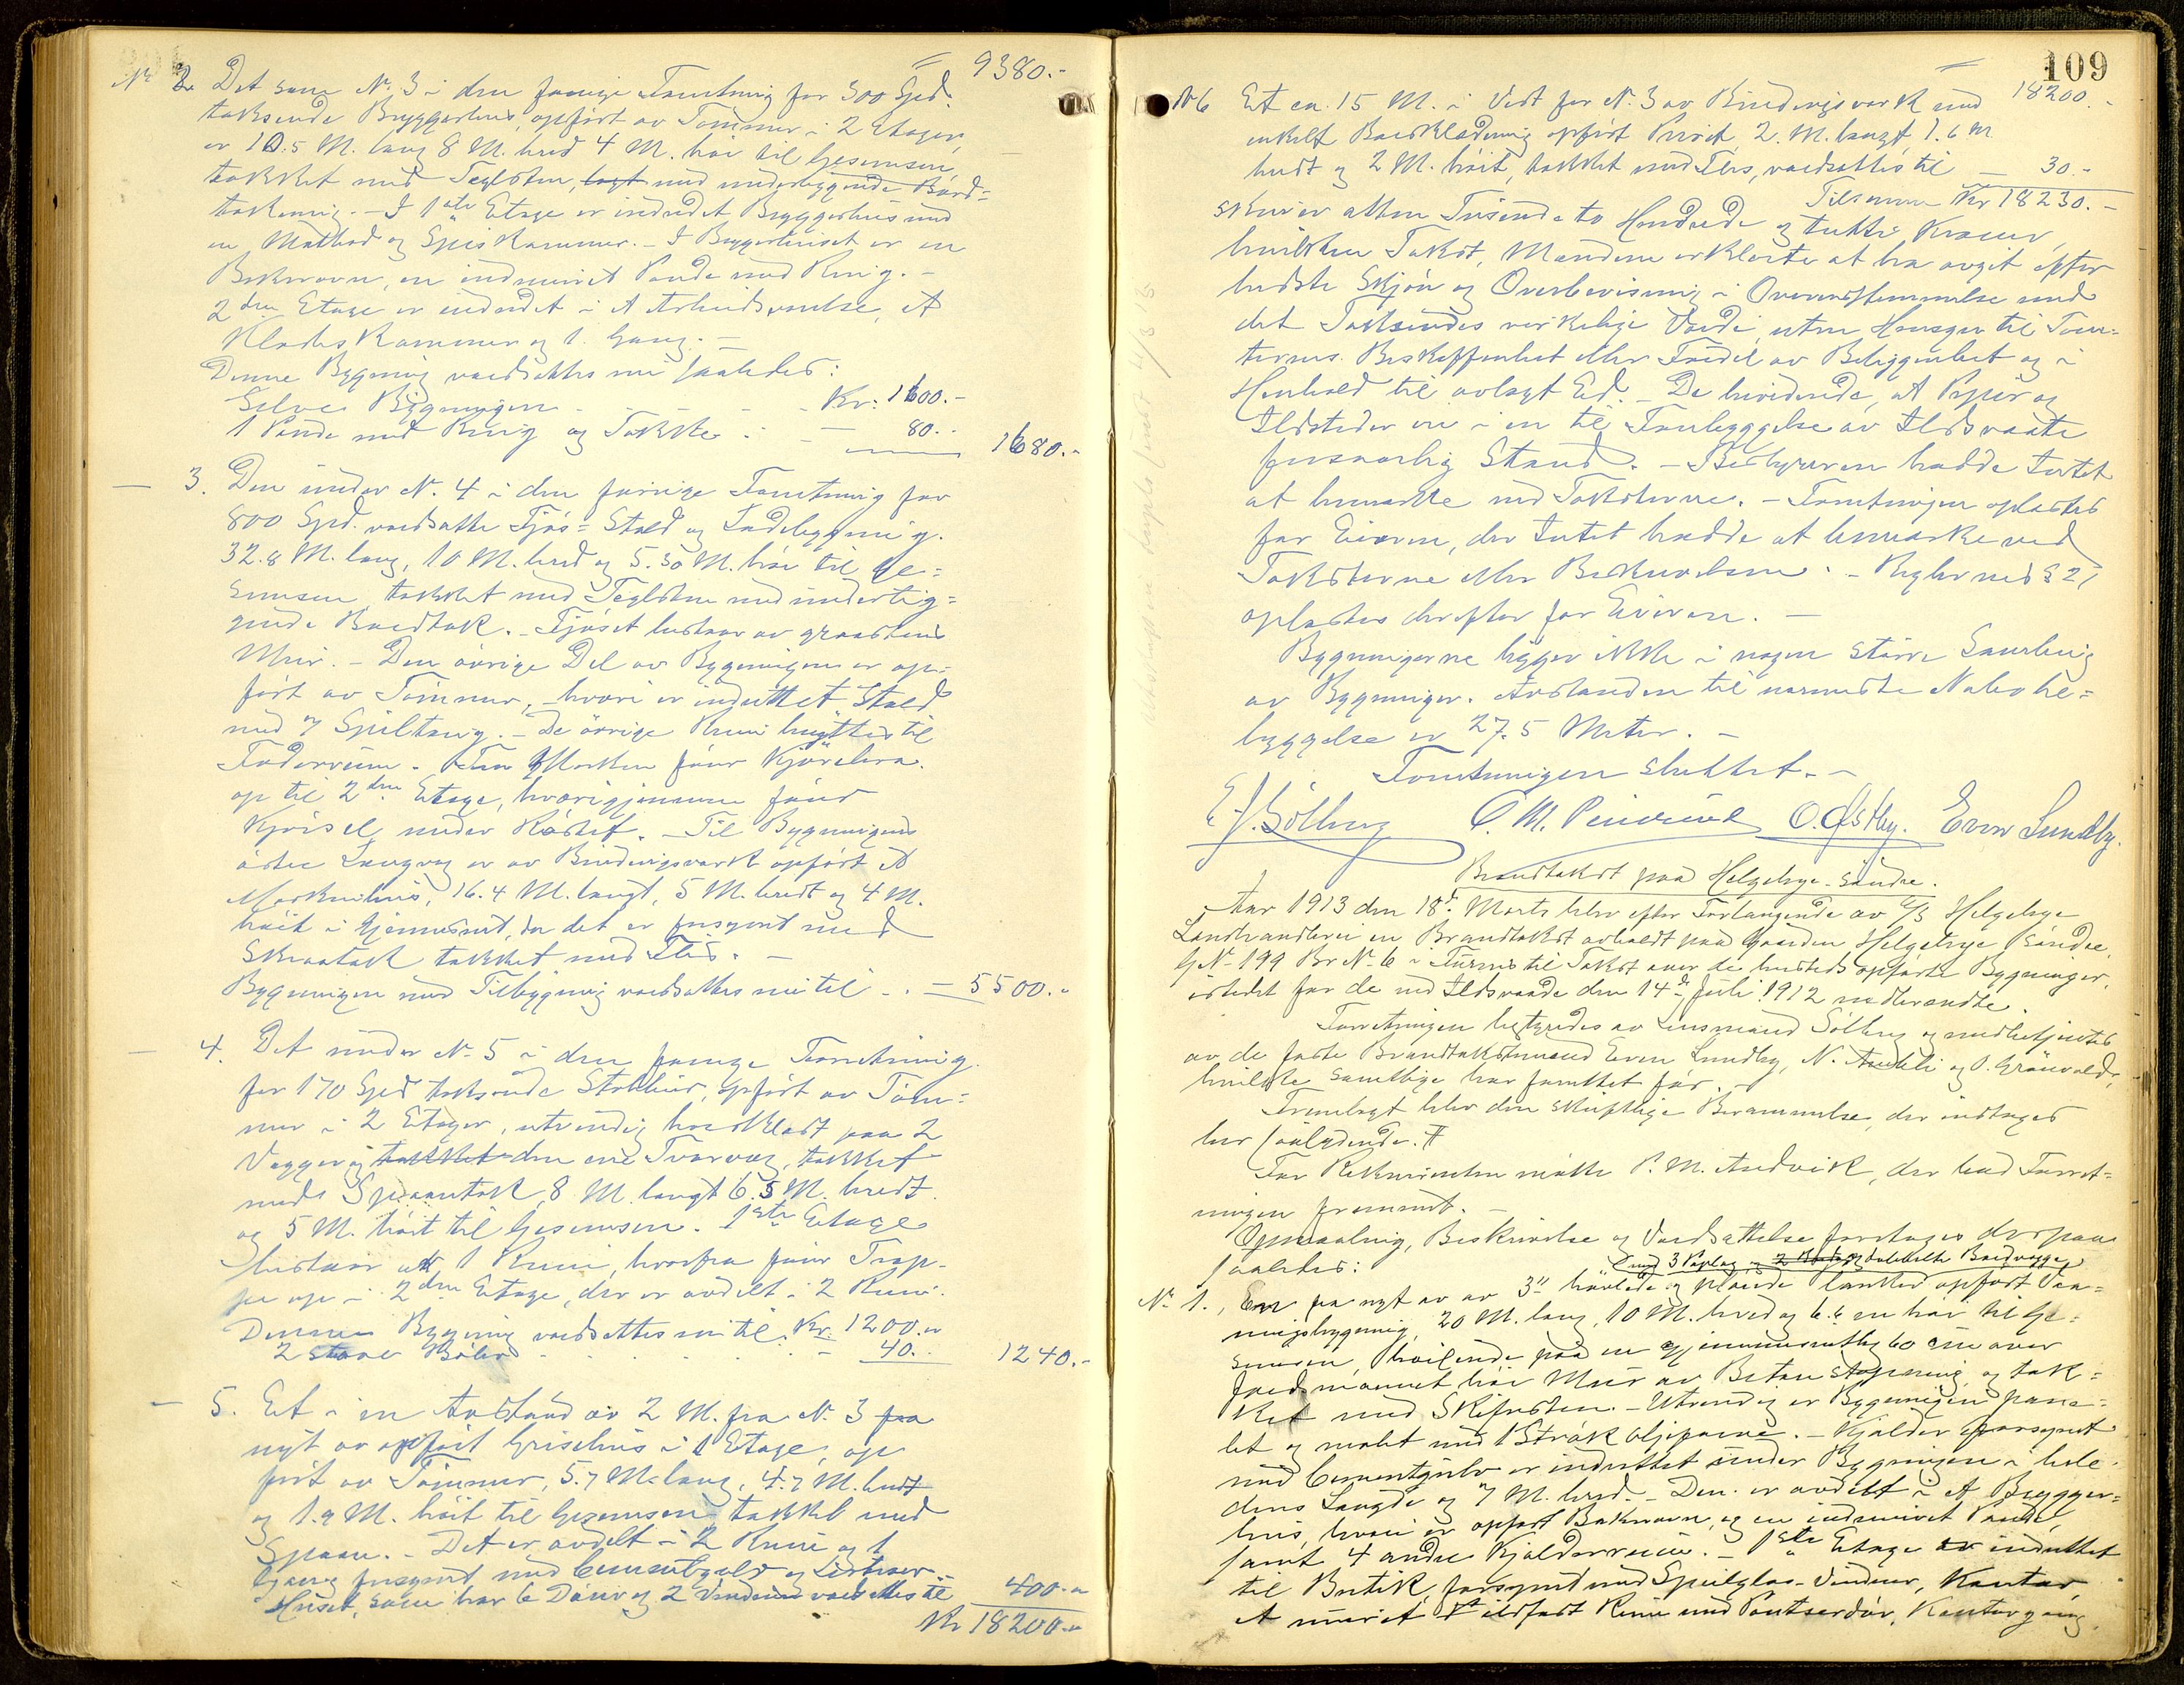 9380.-
No 2. Det som No. 3 i den forrige Forretning for 300 Spd.
taksende Bryggerhus, opført av Tømmer i 2 Etager,
er 10.5 M. lang 8 M. bred 4 M. høi til Gesemsen,
tækket med Teglsten, lagt med underliggende Bord=
tækning. - I 1ste Etage er indredet Bryggerhus med
en Matbod og Spiskammer. - I Bryggerhuset er en
Bakerovn, en indmuret Pande med Ring. -
2den Etage er indredet i et Arbeidsværelse, et
Klædeskammer og 1 Gang. -
Denne Bygning værdsættes nu saaledes:
Selve Bygningen - - - Kr: 1600.-
1 Pande med Ring og Takke - - 80.- 1680.-
- 3. Den under No. 4 i den forrige Forretning for
800 Spd. værdsatte Fjøs= Stald og Ladebygning.
32.8 M. lang, 10 M. bred og 5.50 M. høi til Ge=
semsen, tækket med Teglsten med underlig=
gende Bordtak. - Fjøset bestaar av graastens
Mur. - Den øvrige Del av Bygningen er op=
ført av Tømmer, hvori er indrettet Stald
med 7 Spiltaug. - De øvrige Rum benyttes til
Foderrum. - Fra Marken fører Kjørebro
op til 2den Etage, hvorigjennem fører
Kjørsel under Røstet. - Til Bygningens
østre Langvæg er av Bindingsværk opført et
Maskinhus, 16.4 M. langt, 5 M. bredt og 4 M.
høit i Gjennemsnit, da det er forsynt med
Skraatak tækket med Flis. -
Bygningen med Tilbygning værdsættes nu til - . - 5500.-
- 4. Det under No. 5 i den forrige Forretning
for 170 Spd taksende Stabbur, opført av Tøm=
mer i 2 Etager, utvendig bordklædt paa 2
Vægger og takket den ene Tværvæg, tækket
med Spaantak, 8 M. langt 6.5 M. bredt
og 5 M. høit til Gesemsen. 1ste Etage
bestaar av 1 Rum, hvorfra fører Trap-
pe op i 2den Etage, der er avdelt i 2 Rum.
Denne Bygning værdsættes nu til Kr. 1200.-
2 store Bøler - - - 40.- 1240.-
- 5. Et i en Avstand av 2 M. fra No. 3 fra
nyt av opført Grisehus i 1 Etage, op
ført av Tømmer, 5.7 M. lang, 4.7 M. bredt
og 1.9 M. høit til Gesemsen tækket med
Spaan. - Det er avdelt i 2 Rum og 1
Gang forsynt med Cementgulv og
Huset, som har 6 Dører og 2 Vinduer værdsættes til 400.-
Kr 18200.-
109
18200.-
No 6 Et ca. 15 M. i Vest for No. 3 av Bindingsværk med
enkelt Bordklædning opført Privet, 2 M. langt, 1.6 M
bredt og 2 M. høit, tækket med Flis, værdsættes til - 30.-
Tilsammen Kr 18230.-
skriver atten Tusende to Hundrede og tretti Kroner,
hvilken Takst, Mændene erklærte at ha avgit efter
bedste Skjøn og Overbevisning i Overensstemmelse med
det Taksendes virkelige Værdi, uten Hensyn til Tom=
ternes Beskaffenhet eller Fordel av Beliggenhet og i
Henhold til avlagt Ed. - De bevidnede, at Piper og
Ildsteder er i en til Forebyggelse av Ildsvaade
forsvarlig Stand. - Bestyreren hadde Intet
at bemærke ved Taksterne. - Forretningen oplæstes
for Eieren, der Intet hadde at bemærke ved
Taksterne eller Beskrivelsen. - Reglernes § 27
oplæstes derefter for Eieren. -
Bygningerne ligger ikke i nogen større Samling
av Bygninger. Avstanden til nærmeste Nabobe=
byggelse er 27.5 Meter. -
Forretningen sluttet. -
E. J. Sølberg O. Østby. Even Lundby.
Brandtakst paa Helgebye søndre.
Aar 1913 den 18de Marts blev efter Forlangende av A/S Helgebye
Landhandleri en Brandtakst avholdt paa Gaarden Helgebye søndre,
G No 199 Br No 6 i Furnes til Takst over de hersteds opførte Bygninger,
istedet for de ved Ildsvaade den 14de Juli 1912 nedbrændte.
Forretningen bestyredes av Lensmand Sølberg og medbetjentes
av de faste Brandtakstmænd Even Lundby, N. Arneli og O. Grønvold,
hvilke samtlige har forrettet før.
Fremlagt blev den skriftlige Berammelse, der indtages
her saalydende. #
For Rekvirenten møtte P. M. Andvik, der bad Forret=
ningen fremmet. -
Opmaaling, Beskrivelse og Værdsættelse foretages derpaa
saaledes:
med 3 Paplag og 2 dobbelte Bordvægge
No 1., En fra nyt av av 3" høvlede og pløiede Planker opført Vaa=
ningsbygning, 20 M. lang, 10 M. bred og 6.6 m høi til Ge=
semsen, hvilende paa en gjennemsnitlig 60 cm over
Jordsmonnet høi Mur av Betonstøpning og tæk=
ket med Skifersten. - Utvendig er Bygningen pane=
let og malet med 1 Strøk Oljefarve. - Kjælder forsynt
med Cementgulv er indrettet under Bygningen i hele
dens Længde og 7 M. bred. - Den er avdelt i et Brygger=
hus, hvori er opført Bakerovn, og en indmuret Pande,
samt 4 andre Kjælderrum. - 1ste Etage er indrettet
til Butik, forsynt med Speilglas-Vinduer, Kontor,
et muret ildfast Rum med Pantserdør, Kontorgang,